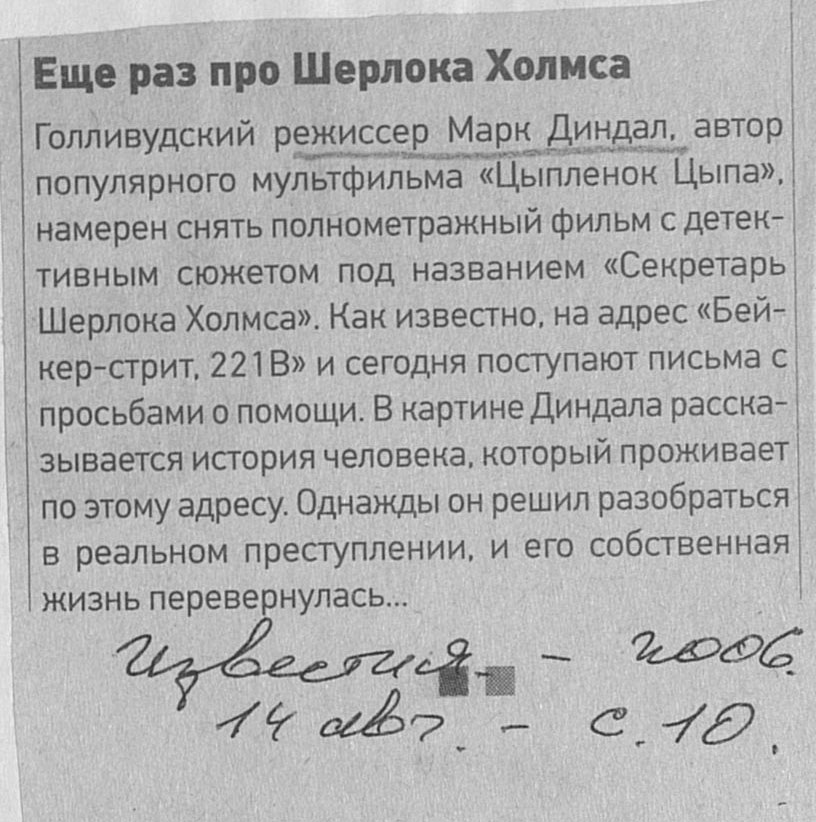 Еще раз про Шерлока Холмса
Голливудский режиссер Марк Диндал, автор
популярного мультфильма «Цыпленок Цыпа»,
намерен снять полнометражный фильм с детек-
тивным сюжетом под названием «Секретарь
Шерлока Холмса». Как известно, на адрес «Бей-
кер-стрит, 221В» и сегодня поступают письма с
просьбами о помощи. В картине Диндала расска-
зывается история человека, который проживает
по этому адресу. Однажды он решил разобраться
в реальном преступлении, и его собственная
жизнь перевернулась...
Известия. - 2006.
14 авг. - с. 10.